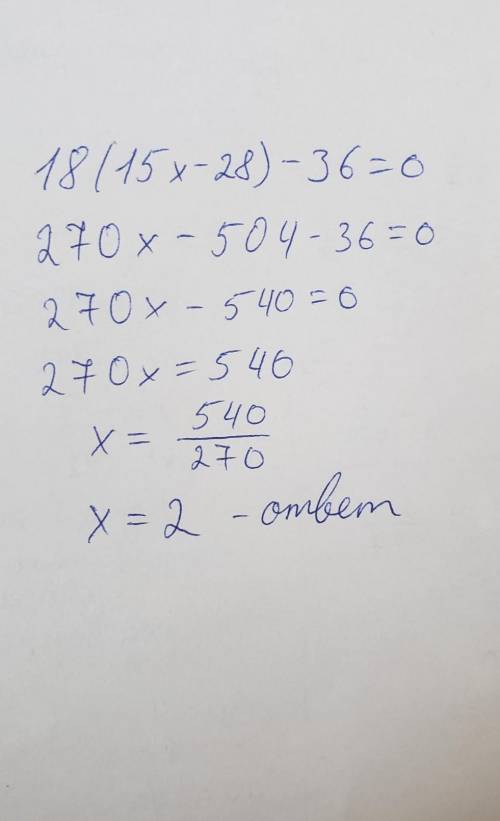 18(15x-28)-36=0
270x-504-36=0
270x-540=0
270x=540
x=540/270
x=2 - ответ